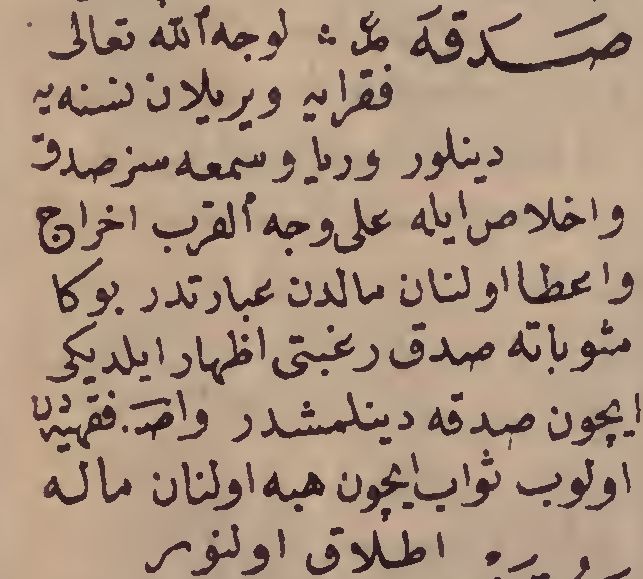 صدقه ع لوجه الله تعالى
فقرایه ویریلان نسنه‌یه
دینلور وریا وسمعه سز صدق
واخلاص ایله على وجه القرب اخراج
واعطا اولنان مالدن عبارتدر بوکا
مثوباته صدق رغبتی اظهار ایلدیکی
ایچون صدقه دینلمشدر واصـ فقهیه‌دن
اولوب ثواب ایچون هبه اولنان ماله
اطلاق اولنور